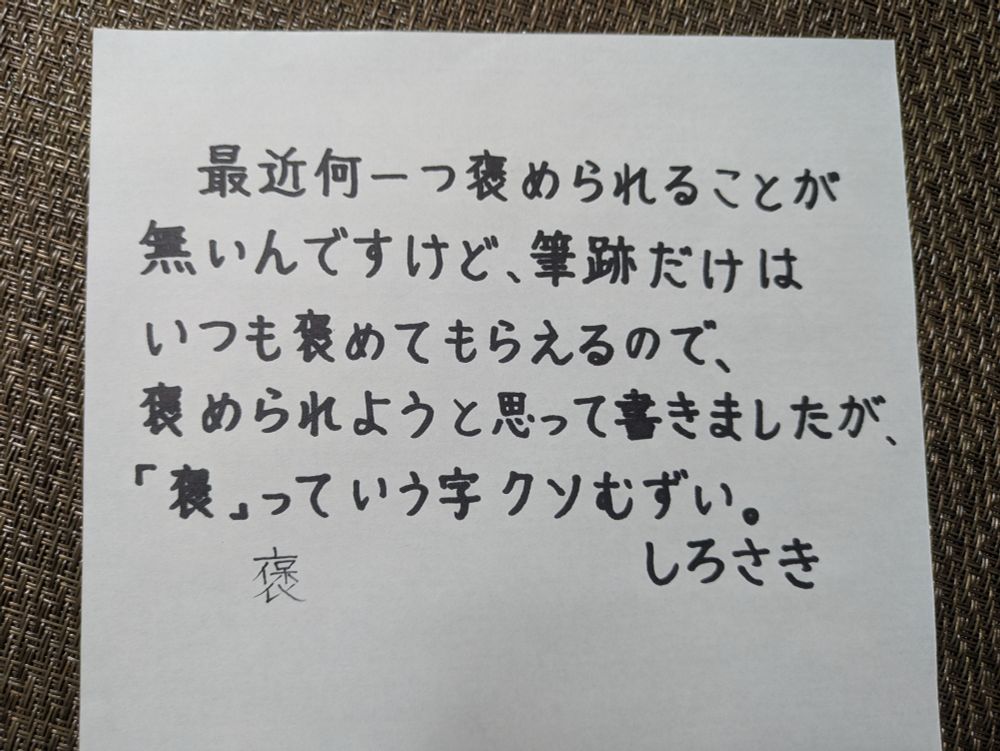 最近何一つ褒められることが
無いんですけど、筆跡だけは
いつも褒めてもらえるので、
褒められようと思って書きましたが、
「褒」っていう字クソむずい。
褒
しろさき